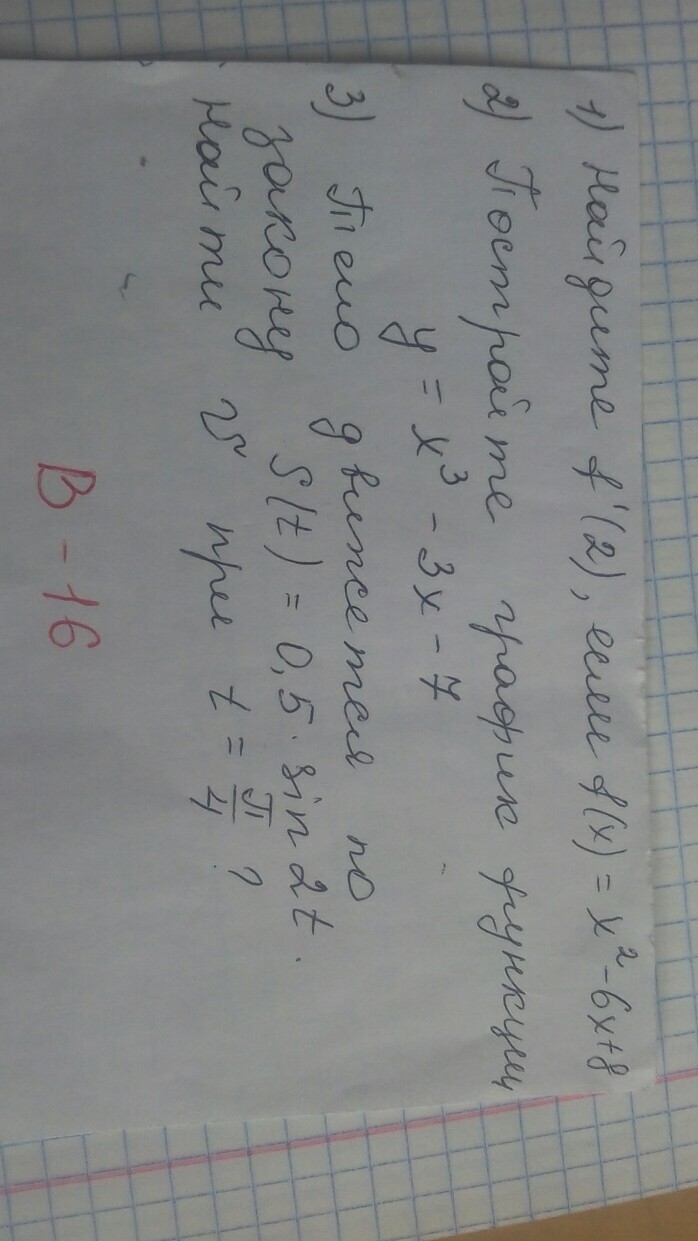 1) Найдите f'(2), если f(x) = x² - 6x + 8
2) Постройте график функции
y = x³ - 3x - 7
3) Тело движется по
закону S(t) = 0,5 · sin 2t.
Найти v при t = π/4 ?
В - 16